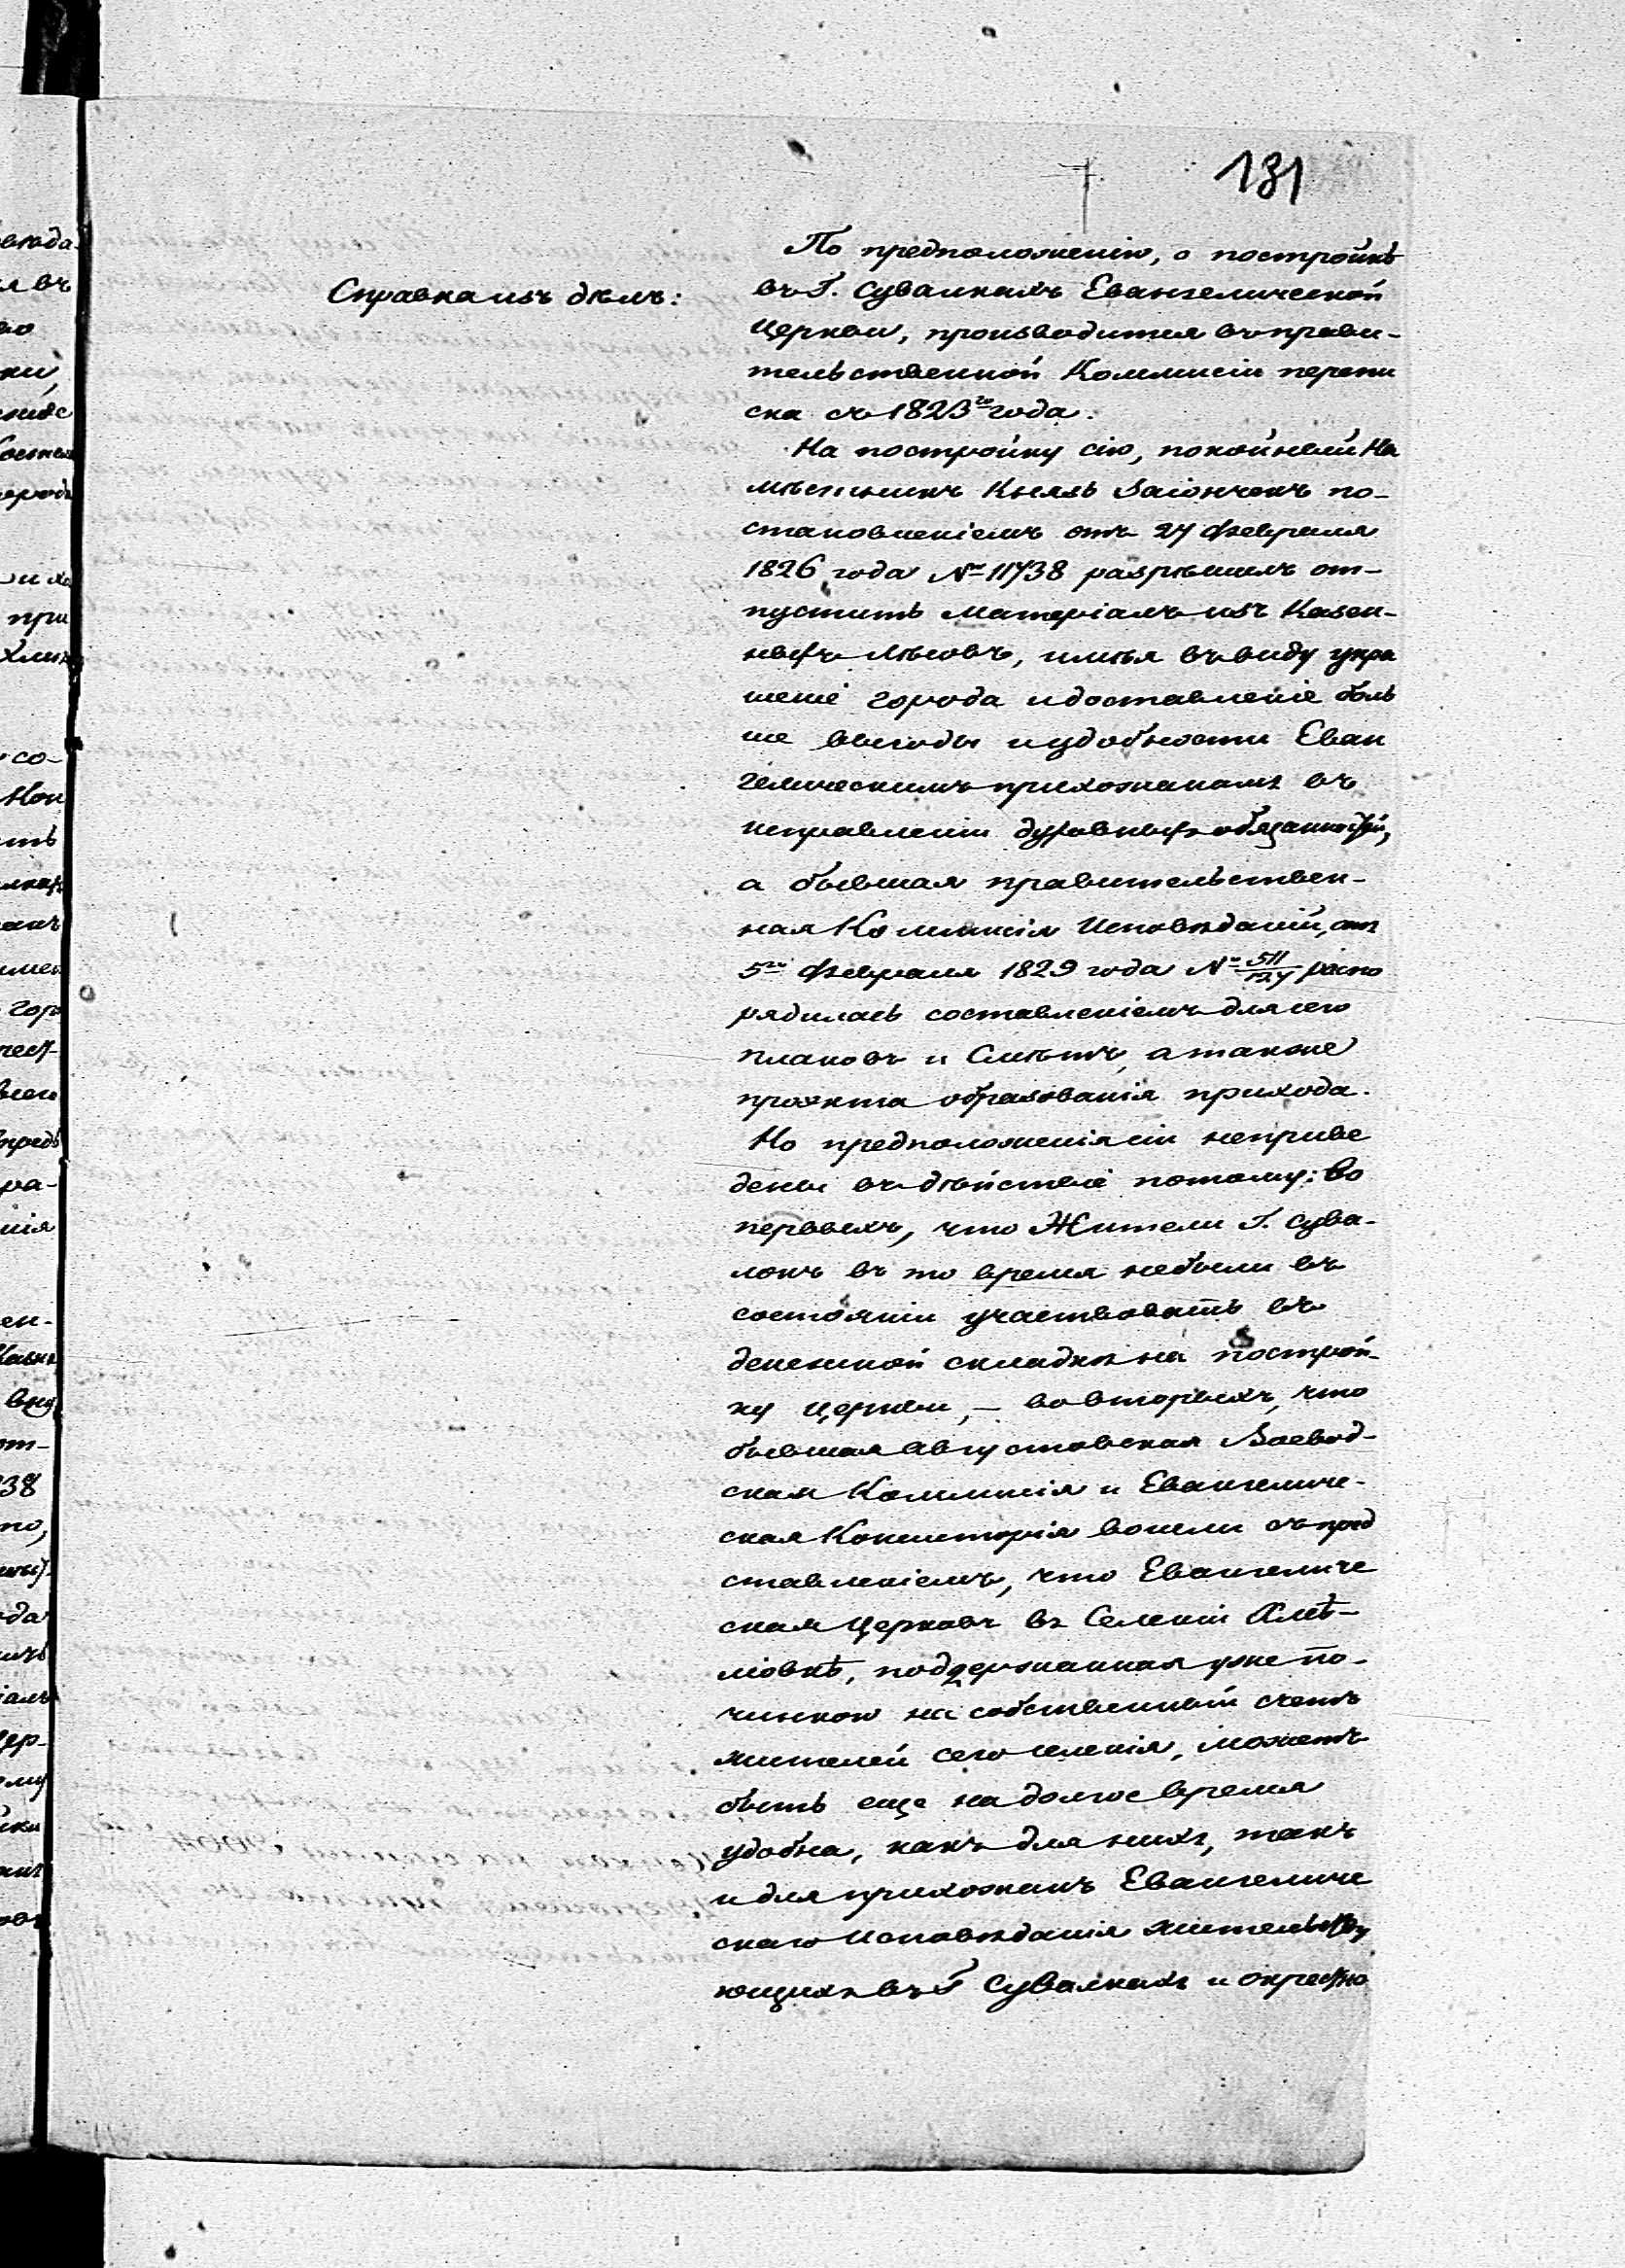 131
Справка изъ дѣлъ:
По предположенію, о постройкѣ
въ Г. Сувалкахъ Евангелической
Церкви, производится въ прави-
тельственной Коммисіи перепи
ска съ 1823го года.
На постройку сію, покойный На
мѣстникъ Князь Заіончекъ по-
становленіемъ отъ 27 Февраля
1826 года № 11738 разрѣшилъ от-
пустить Матеріалъ изъ Казен-
ныхъ лѣсовъ, имѣя въ виду укра
шеніе города и доставленіе боль
ше выгоды и удобности Еван
гелическимъ прихожанамъ въ
исправленіи духовныхъ обязанностей,
а бывшая правительствен-
ная Коммисія Исповѣданій, отъ
5го Февраля 1829 года № 511/127 распо
рядилась составленіемъ для сего
плановъ и Смѣтъ, а также
проэкта образованія прихода.
Но предположенія сіи неприве
дены въ дѣйствіе потому: во
первыхъ, что Жители Г. Сува-
локъ въ то время небыли въ
состояніи участвовать въ
денежной складкѣ на построй-
ку церкви, – во вторыхъ, что
бывшая Августовская Воевод-
ская Коммисія и Евангеличе-
ская Консисторія вошли съ пред
ставленіемъ, что Евангеличе
ская Церковь въ Селеніи Хмѣ-
ліовкѣ, поддержанная уже по-
чинкою на собственный счетъ
жителей сего селенія, можетъ
быть еще на долгое время
удобна, какъ для нихъ, такъ
и для прихожанъ Евангеличе
скаго Исповѣданія жительству
ющихъ въ Г Сувалкахъ и окрестно